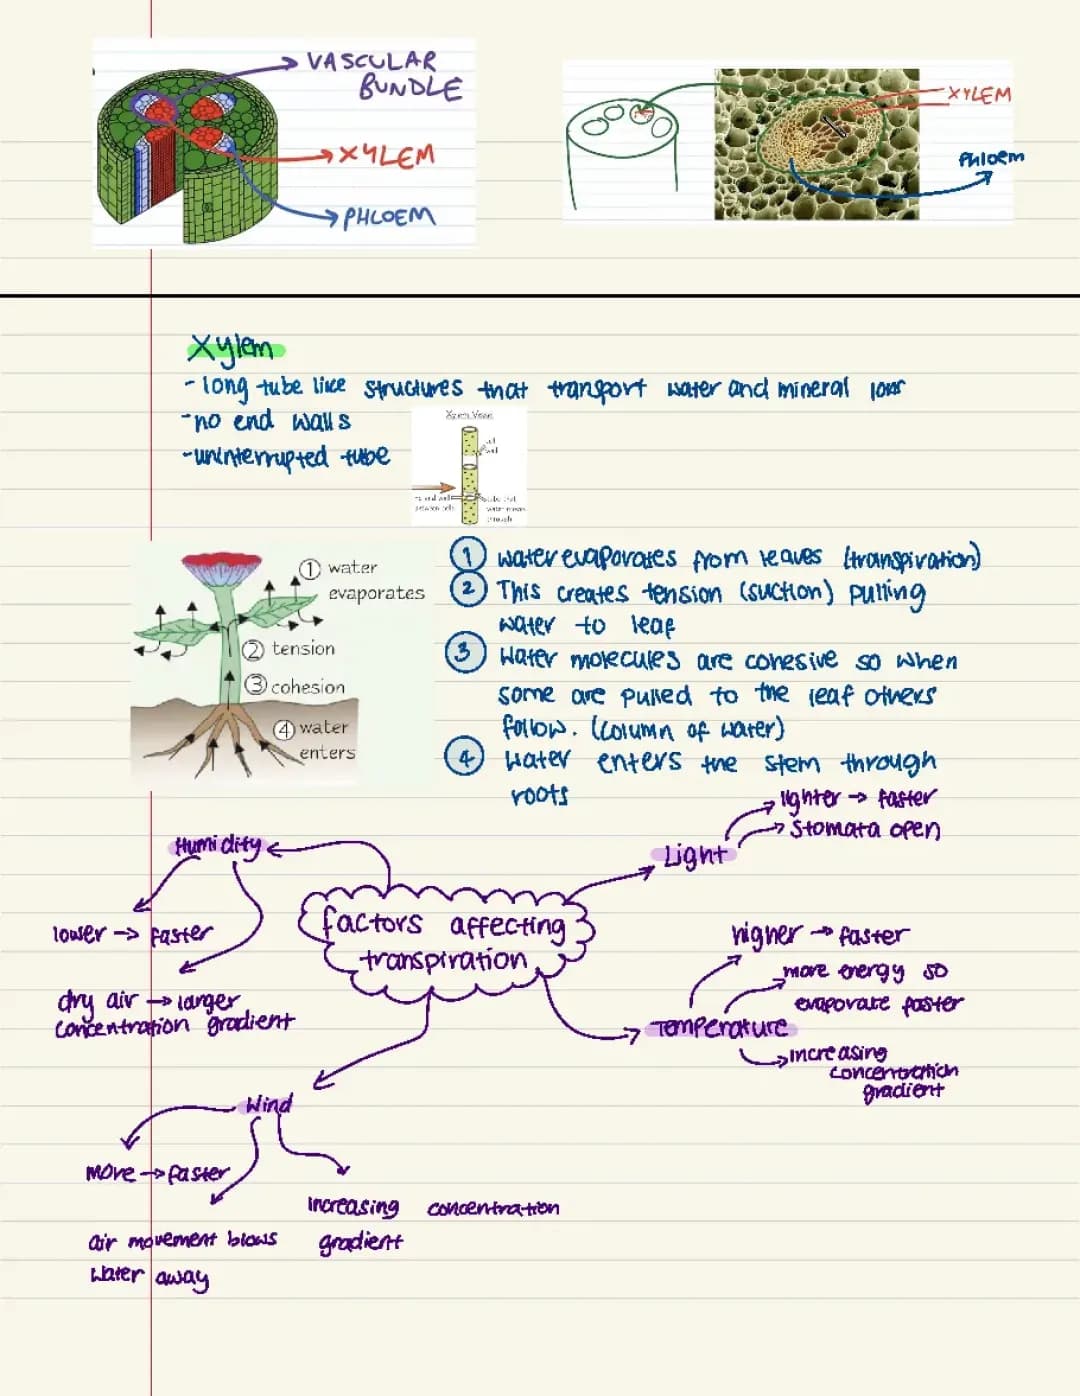 VASCULAR
BUNDLE
XYLEM
PHLOEM
XYLEM
Phloem
Xylem
- long tube like structures that transport water and mineral ions
- no end walls
- uninterrupted tube
Xylem Vessel
cell
wall
no end walls
between cells
tube that
water moves
through
① water
evaporates
② tension
③ cohesion
④ water
enters
1 Water evaporates from leaves (transpiration)
2 This creates tension (suction) pulling
water to leaf
3 Water molecules are cohesive so when
some are pulled to the leaf others
follow. (column of water)
4 Water enters the stem through
roots
factors affecting
transpiration
Humidity
lower → faster
dry air → larger
concentration gradient
Light
lighter → faster
Stomata open
Temperature
higher → faster
more energy so
evaporate faster
increasing
concentration
gradient
Wind
more → faster
air movement blows
Water away
increasing concentration
gradient